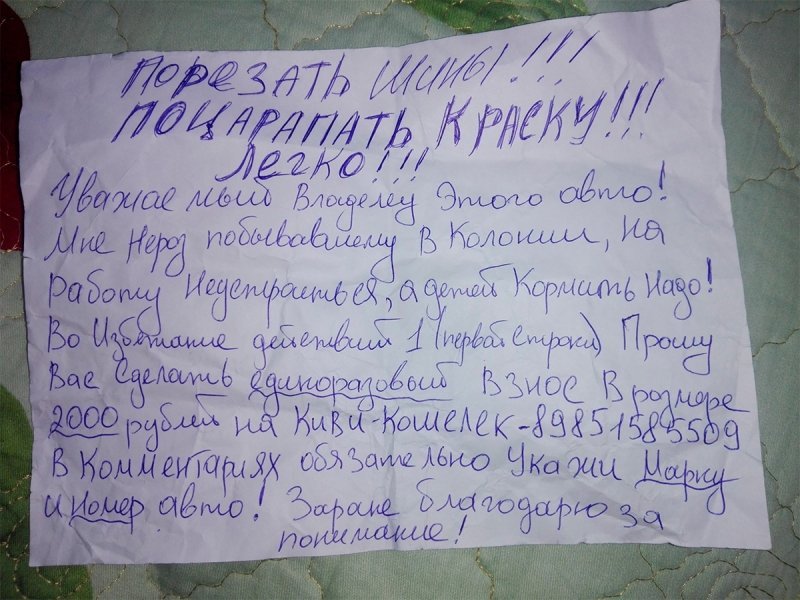 ПОРЕЗАТЬ ШИНЫ!!!
ПОЦАРАПАТЬ КРАСКУ!!!
ЛЕГКО!!!
Уважаемый Владелец Этого авто!
Мне Нераз побывавшему в Колонии, на
работу Неустраеться, а детей Кормить Надо!
Во Избежание действий 1 (первой строки) Прошу
Вас Сделать единоразовый Взнос В размере
2000 рублей на Киви-Кошелек-89851585509
В Комментариях обязательно Укажи Марку
и номер авто! Заране благодарю за
понимание!